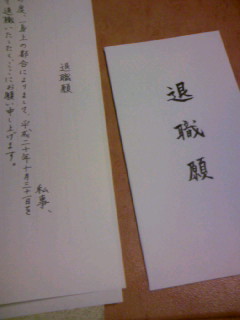 退職願
退職願
私事、
度、一身上の都合によりまして、平成二十年十月三十一日を
て退職いたしたく、ここにお願い申し上げます。